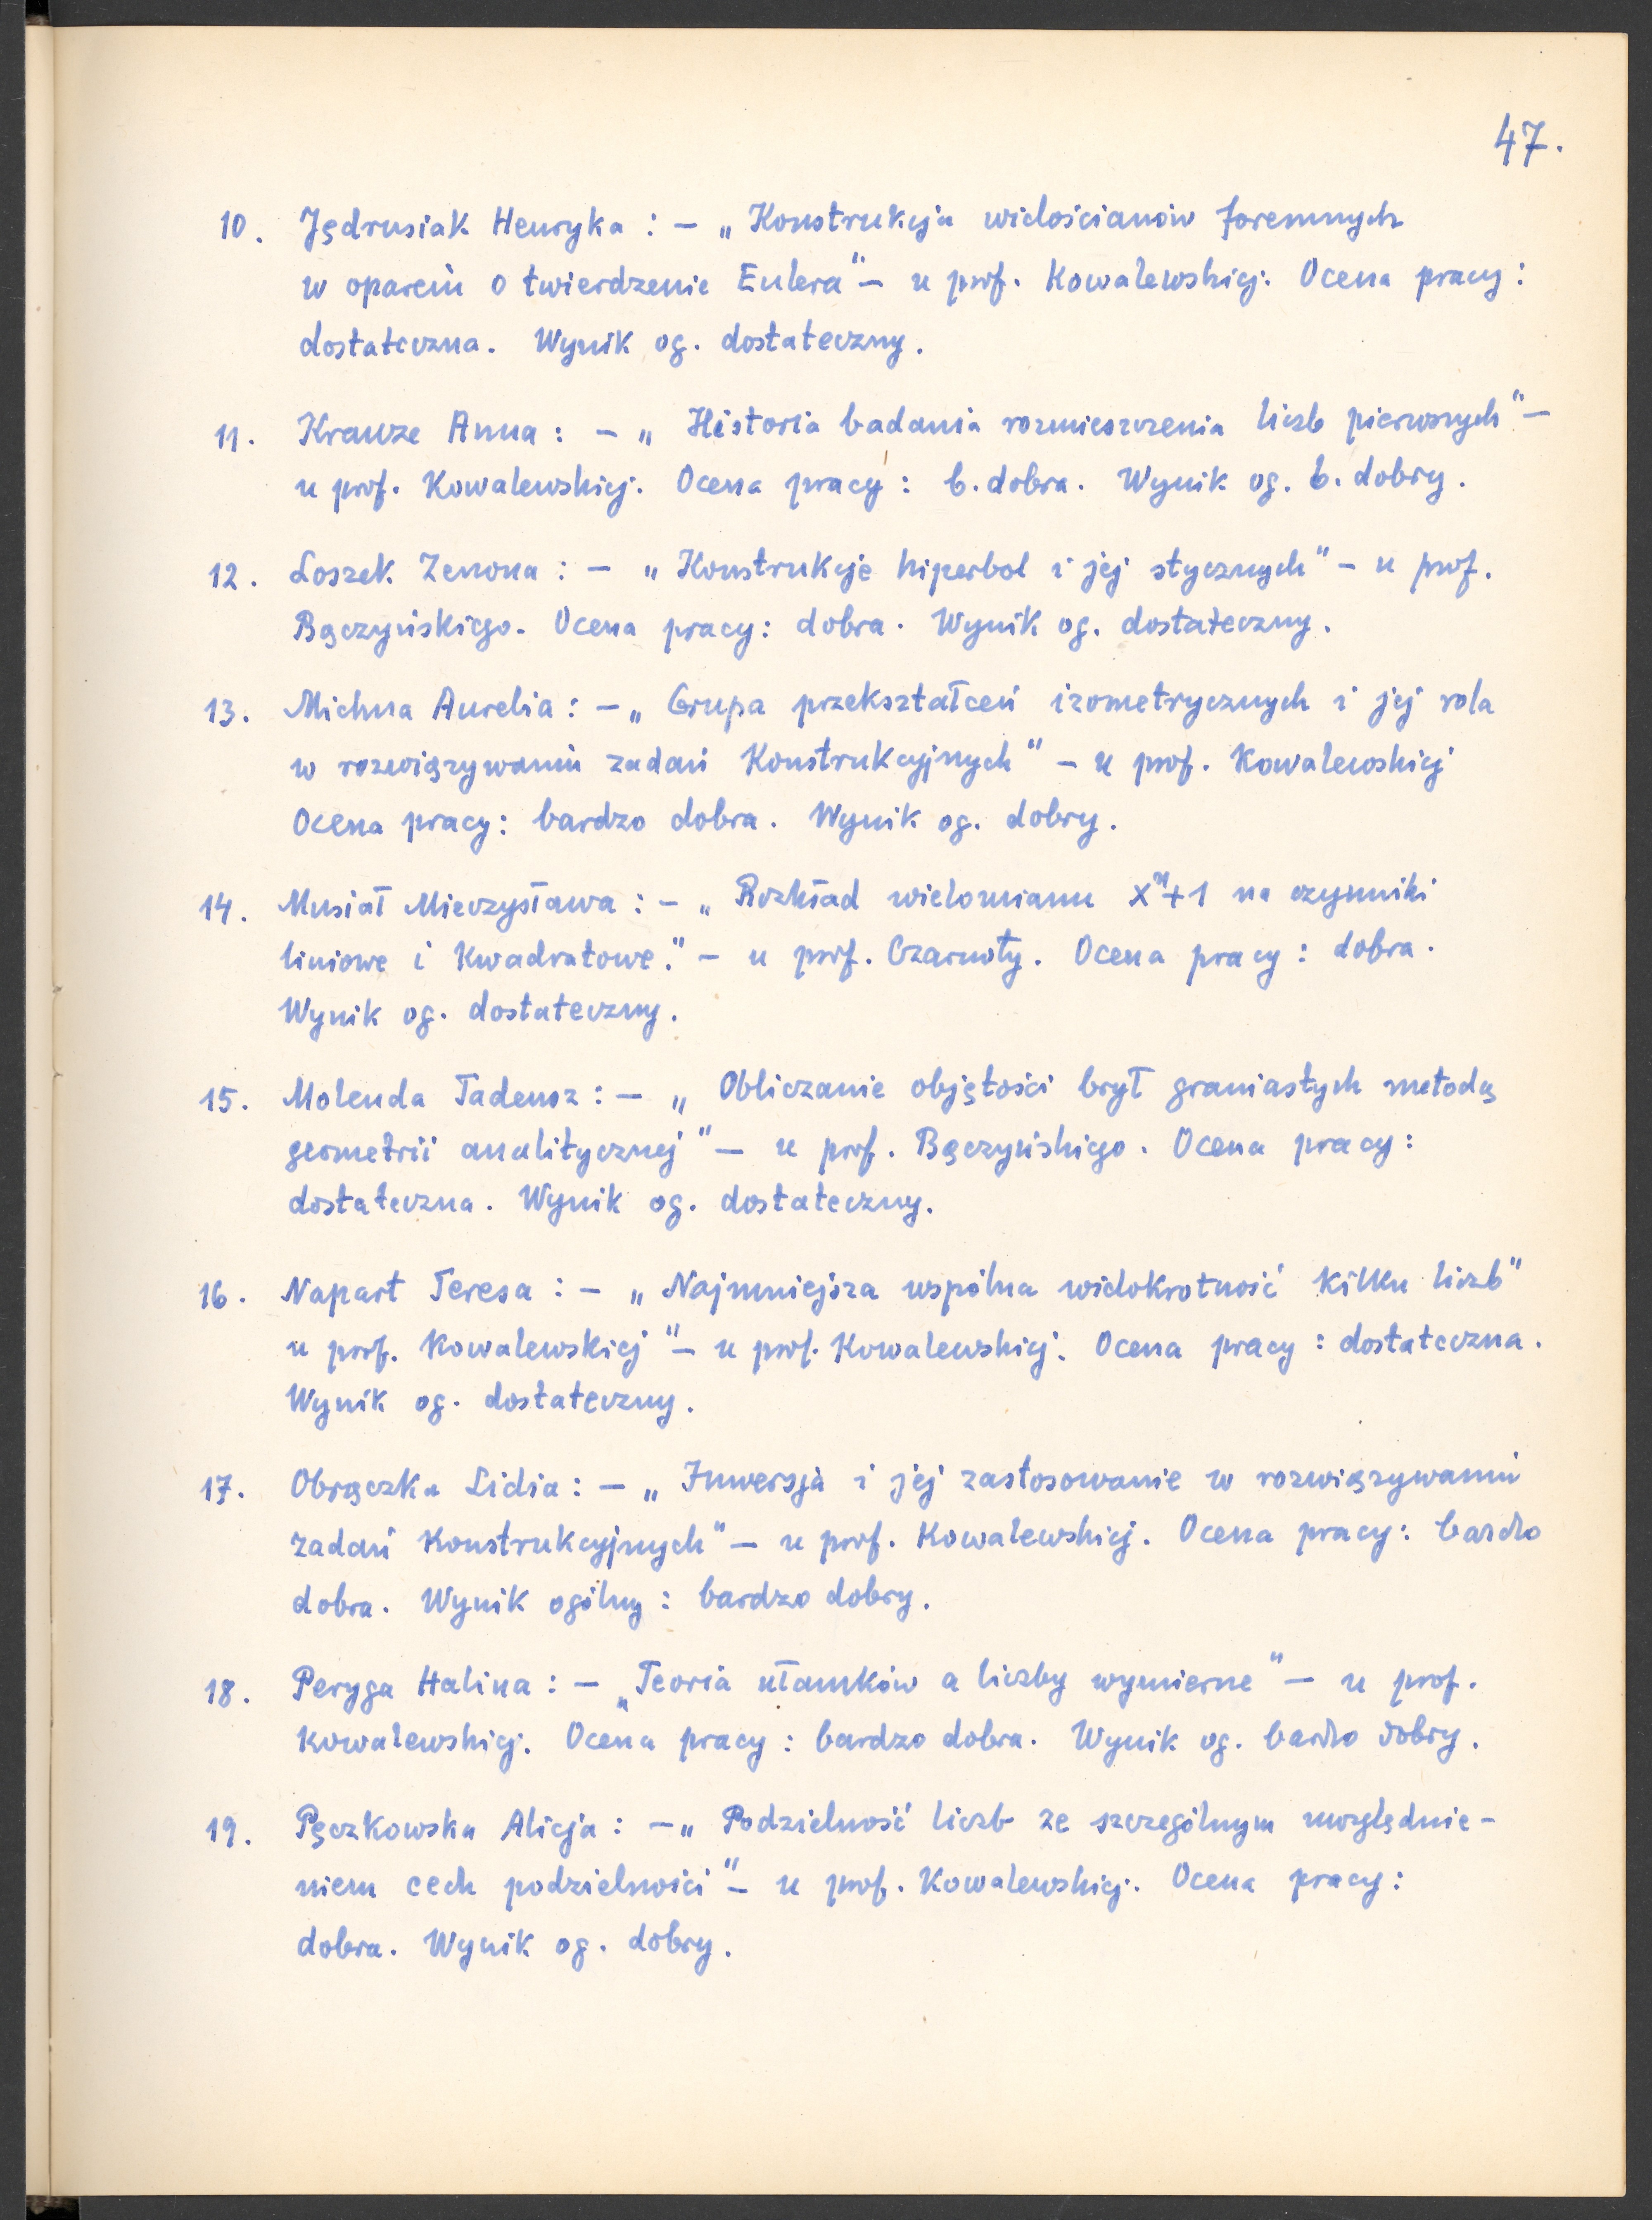 47.
10. Jędrusiak Henryka : — „Konstrukcja wielościanów foremnych
w oparciu o twierdzenie Eulera" — u prof. Kowalewskiej. Ocena pracy :
dostateczna. Wynik og. dostateczny.
11. Krauze Anna : — „Historia badania rozmieszczenia liczb pierwszych" —
u prof. Kowalewskiej. Ocena pracy : b. dobra. Wynik og. b. dobry.
12. Loszek Zenona : — „Konstrukcje hiperbol i jej stycznych" — u prof.
Bączyńskiego. Ocena pracy : dobra. Wynik og. dostateczny.
13. Michna Aurelia : — „Grupa przekształceń izometrycznych i jej rola
w rozwiązywaniu zadań Konstrukcyjnych" — u prof. Kowalewskiej
Ocena pracy : bardzo dobra. Wynik og. dobry.
14. Musiał Mieczysława : — „Rozkład wielomianu xⁿ+1 na czynniki
liniowe i kwadratowe." — u prof. Czarnoty. Ocena pracy : dobra.
Wynik og. dostateczny.
15. Molenda Tadeusz : — „Obliczanie objętości brył graniastych metodą
geometrii analitycznej" — u prof. Bączyńskiego. Ocena pracy :
dostateczna. Wynik og. dostateczny.
16. Napart Teresa : — „Najmniejsza wspólna wielokrotność kilku liczb"
u prof. Kowalewskiej" — u prof. Kowalewskiej. Ocena pracy : dostateczna.
Wynik og. dostateczny.
17. Obrączka Lidia : — „Inwersja i jej zastosowanie w rozwiązywaniu
zadań Konstrukcyjnych" — u prof. Kowalewskiej. Ocena pracy : bardzo
dobra. Wynik ogólny : bardzo dobry.
18. Peryga Halina : — „Teoria ułamków a liczby wymierne" — u prof.
Kowalewskiej. Ocena pracy : bardzo dobra. Wynik og. bardzo dobry.
19. Pęczkowska Alicja : — „Podzielność liczb ze szczególnym uwzględnie-
niem cech podzielności" — u prof. Kowalewskiej. Ocena pracy :
dobra. Wynik og. dobry.